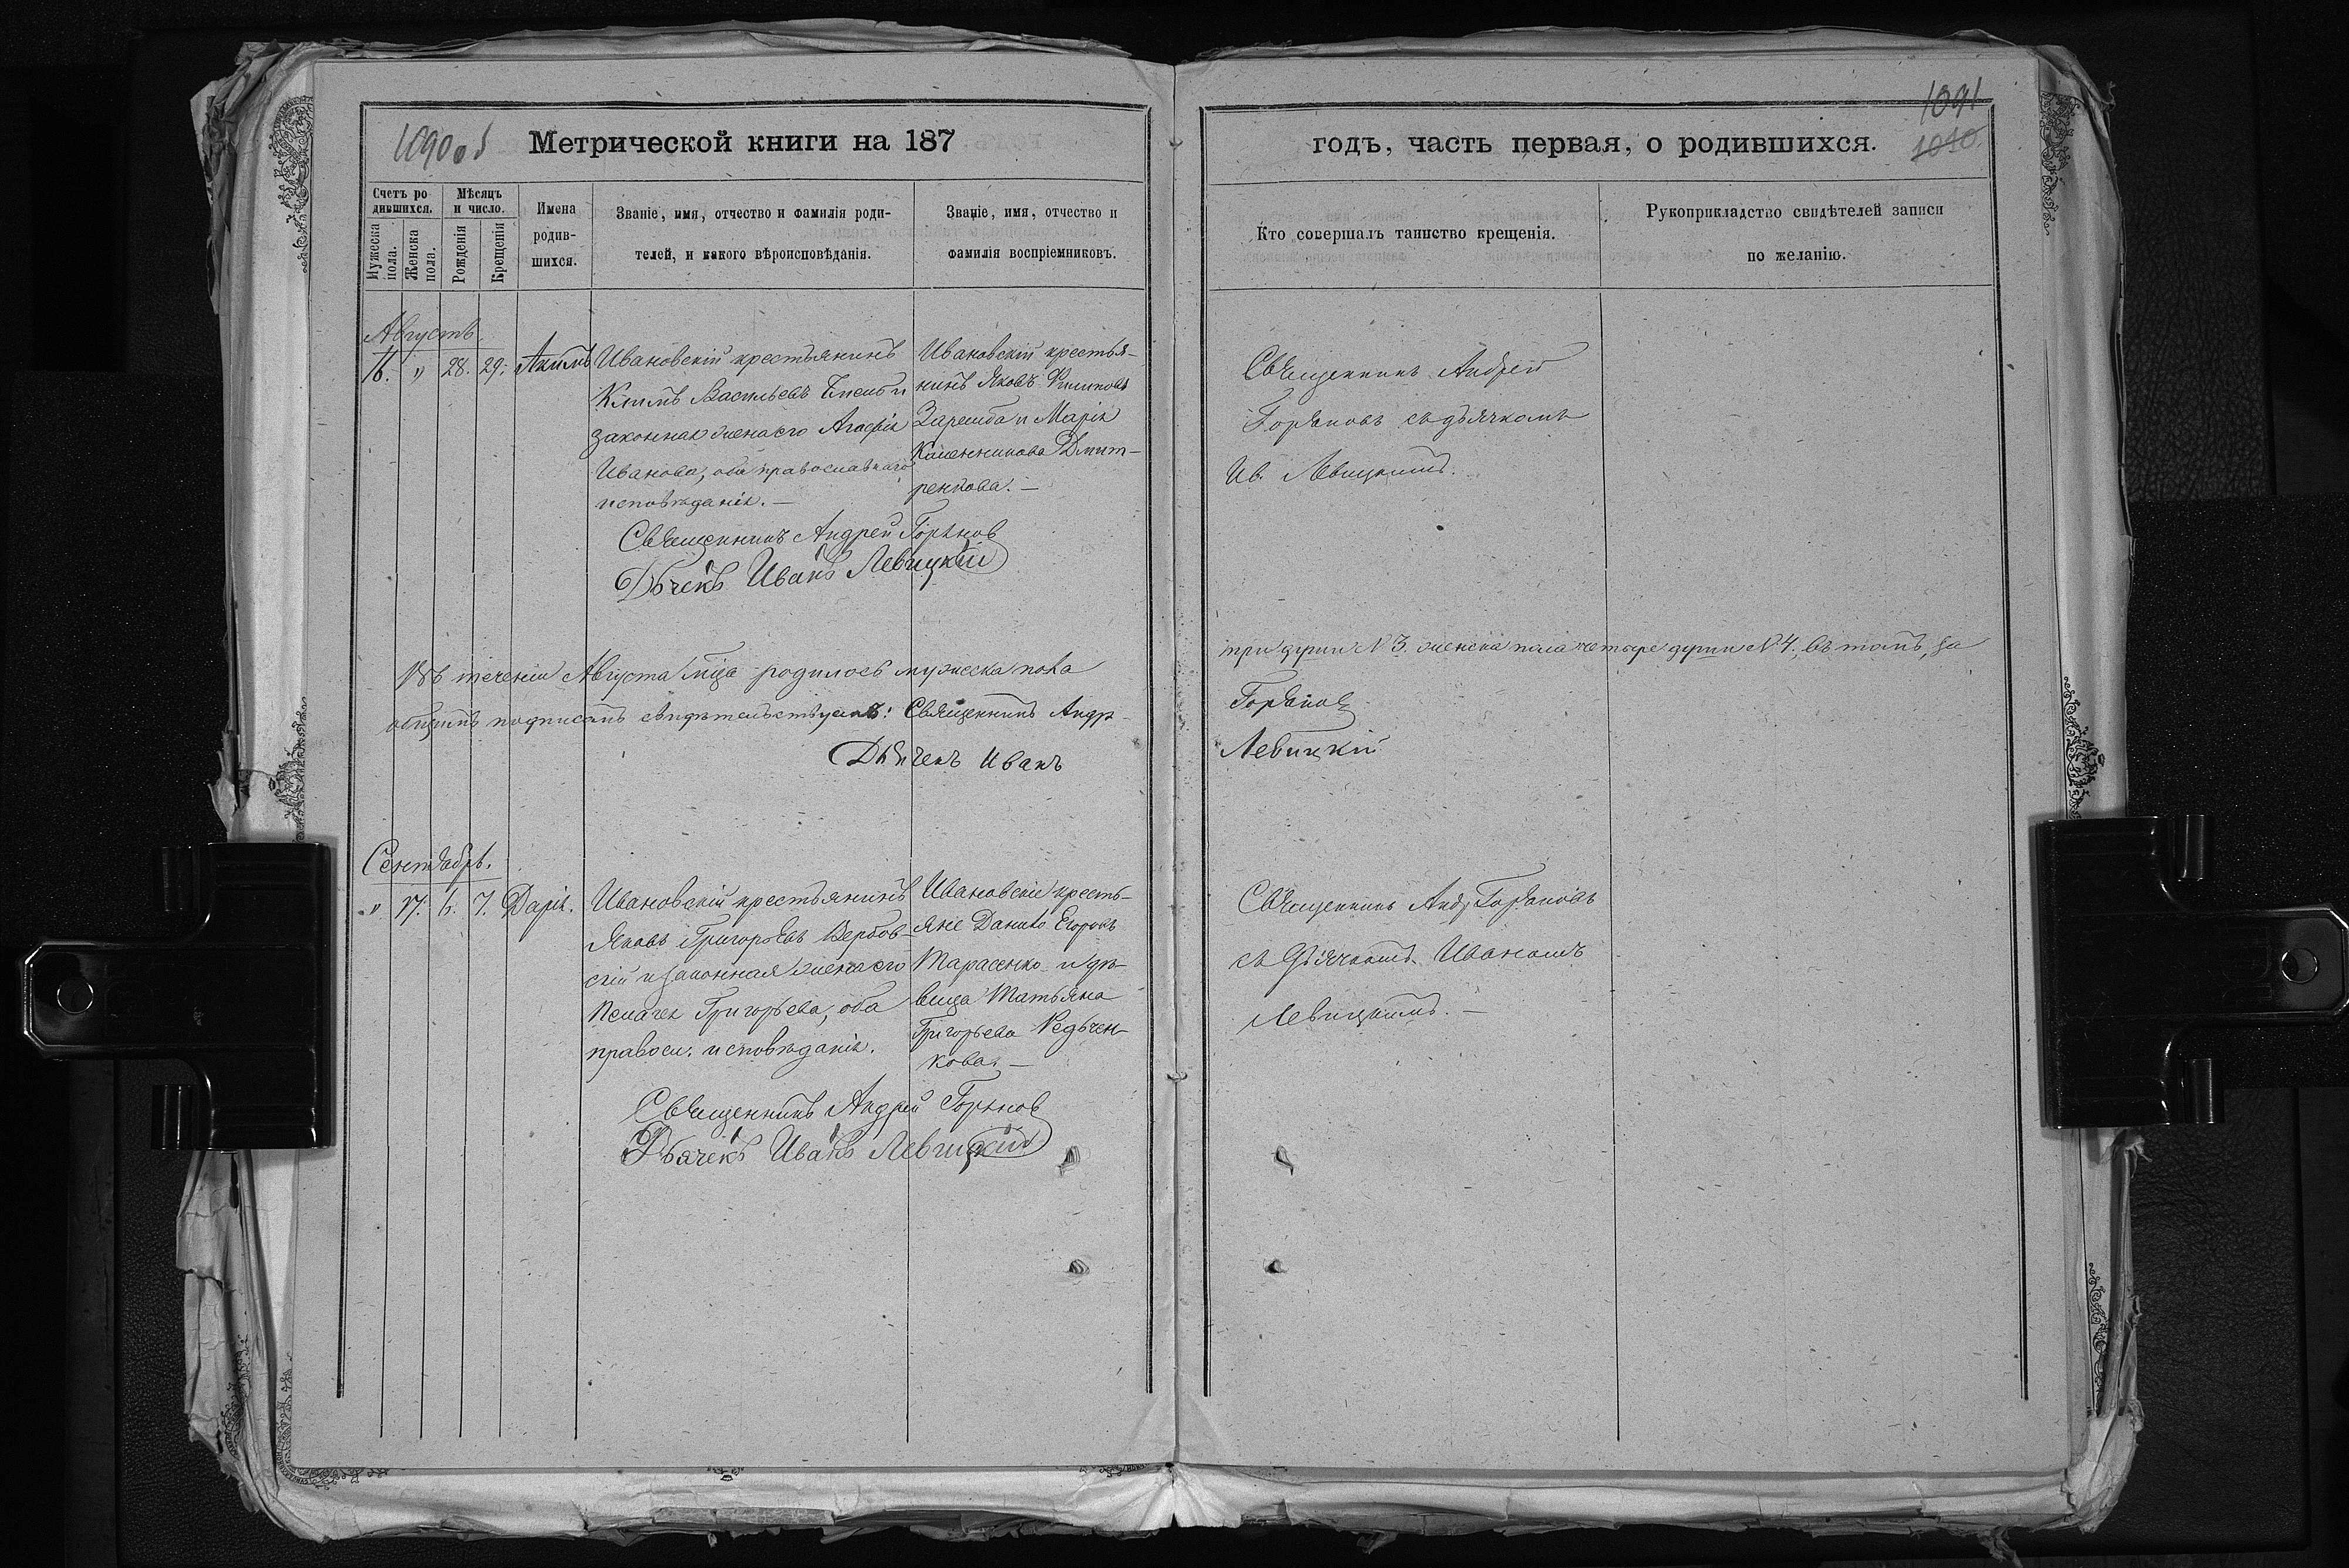 1090об
Метрической книги на 187
Счетъ ро-
дившихся.
Мѣсяцъ
и число.
Мужеска
пола.
Женска
пола.
Рожденія
Крещенія
Имена
родив-
шихся.
Званіе, имя, отчество и фамилія роди-
телей, и какого вѣроисповѣданія.
Званіе, имя, отчество и
фамилія воспріемниковъ.
Августъ.
16. " 28. 29. Акимъ
Ивановскій крестьянинъ
Климъ Васильевъ и
законная жена его Агафія
Иванова, оба православнаго
исповѣданія. —
Ивановскій крестья-
нинъ Яковъ Филиповъ
Заремба и Марія
Дмит-
ренкова. —
Священникъ Андрей Горяновъ
Дьячекъ Иванъ Левицкій
Въ теченіи Августа мца родилось мужеска пола
общимъ подписомъ свидѣтельствуемъ: Священникъ Андр.
Дьячекъ Иванъ
Сентябрь.
" 17. 6. 7. Дарія.
Ивановскій крестьянинъ
Яковъ Григорьевъ Вербов-
скій и законная жена его
Пелагея Григорьева, оба
правосл. исповѣданія.
Ивановскіе кресть-
яне Данило Егоровъ
Тарасенко и дѣ-
вица Татьяна
Григорьева Редьчен-
кова. —
Священникъ Андрей Горяновъ
Дьячекъ Иванъ Левицкій
1091
1010.
годъ, часть первая, о родившихся.
Кто совершалъ таинство крещенія.
Рукоприкладство свидѣтелей записи
по желанію.
Священникъ Андрей
Горяновъ съ дьячкомъ
Ив. Левицкимъ.
три души № 3. женска пола четыре души № 4., въ томъ, за
Горяновъ
Левицкій
Священникъ Андр. Горяновъ
съ дьячкомъ Иваномъ
Левицкимъ. —